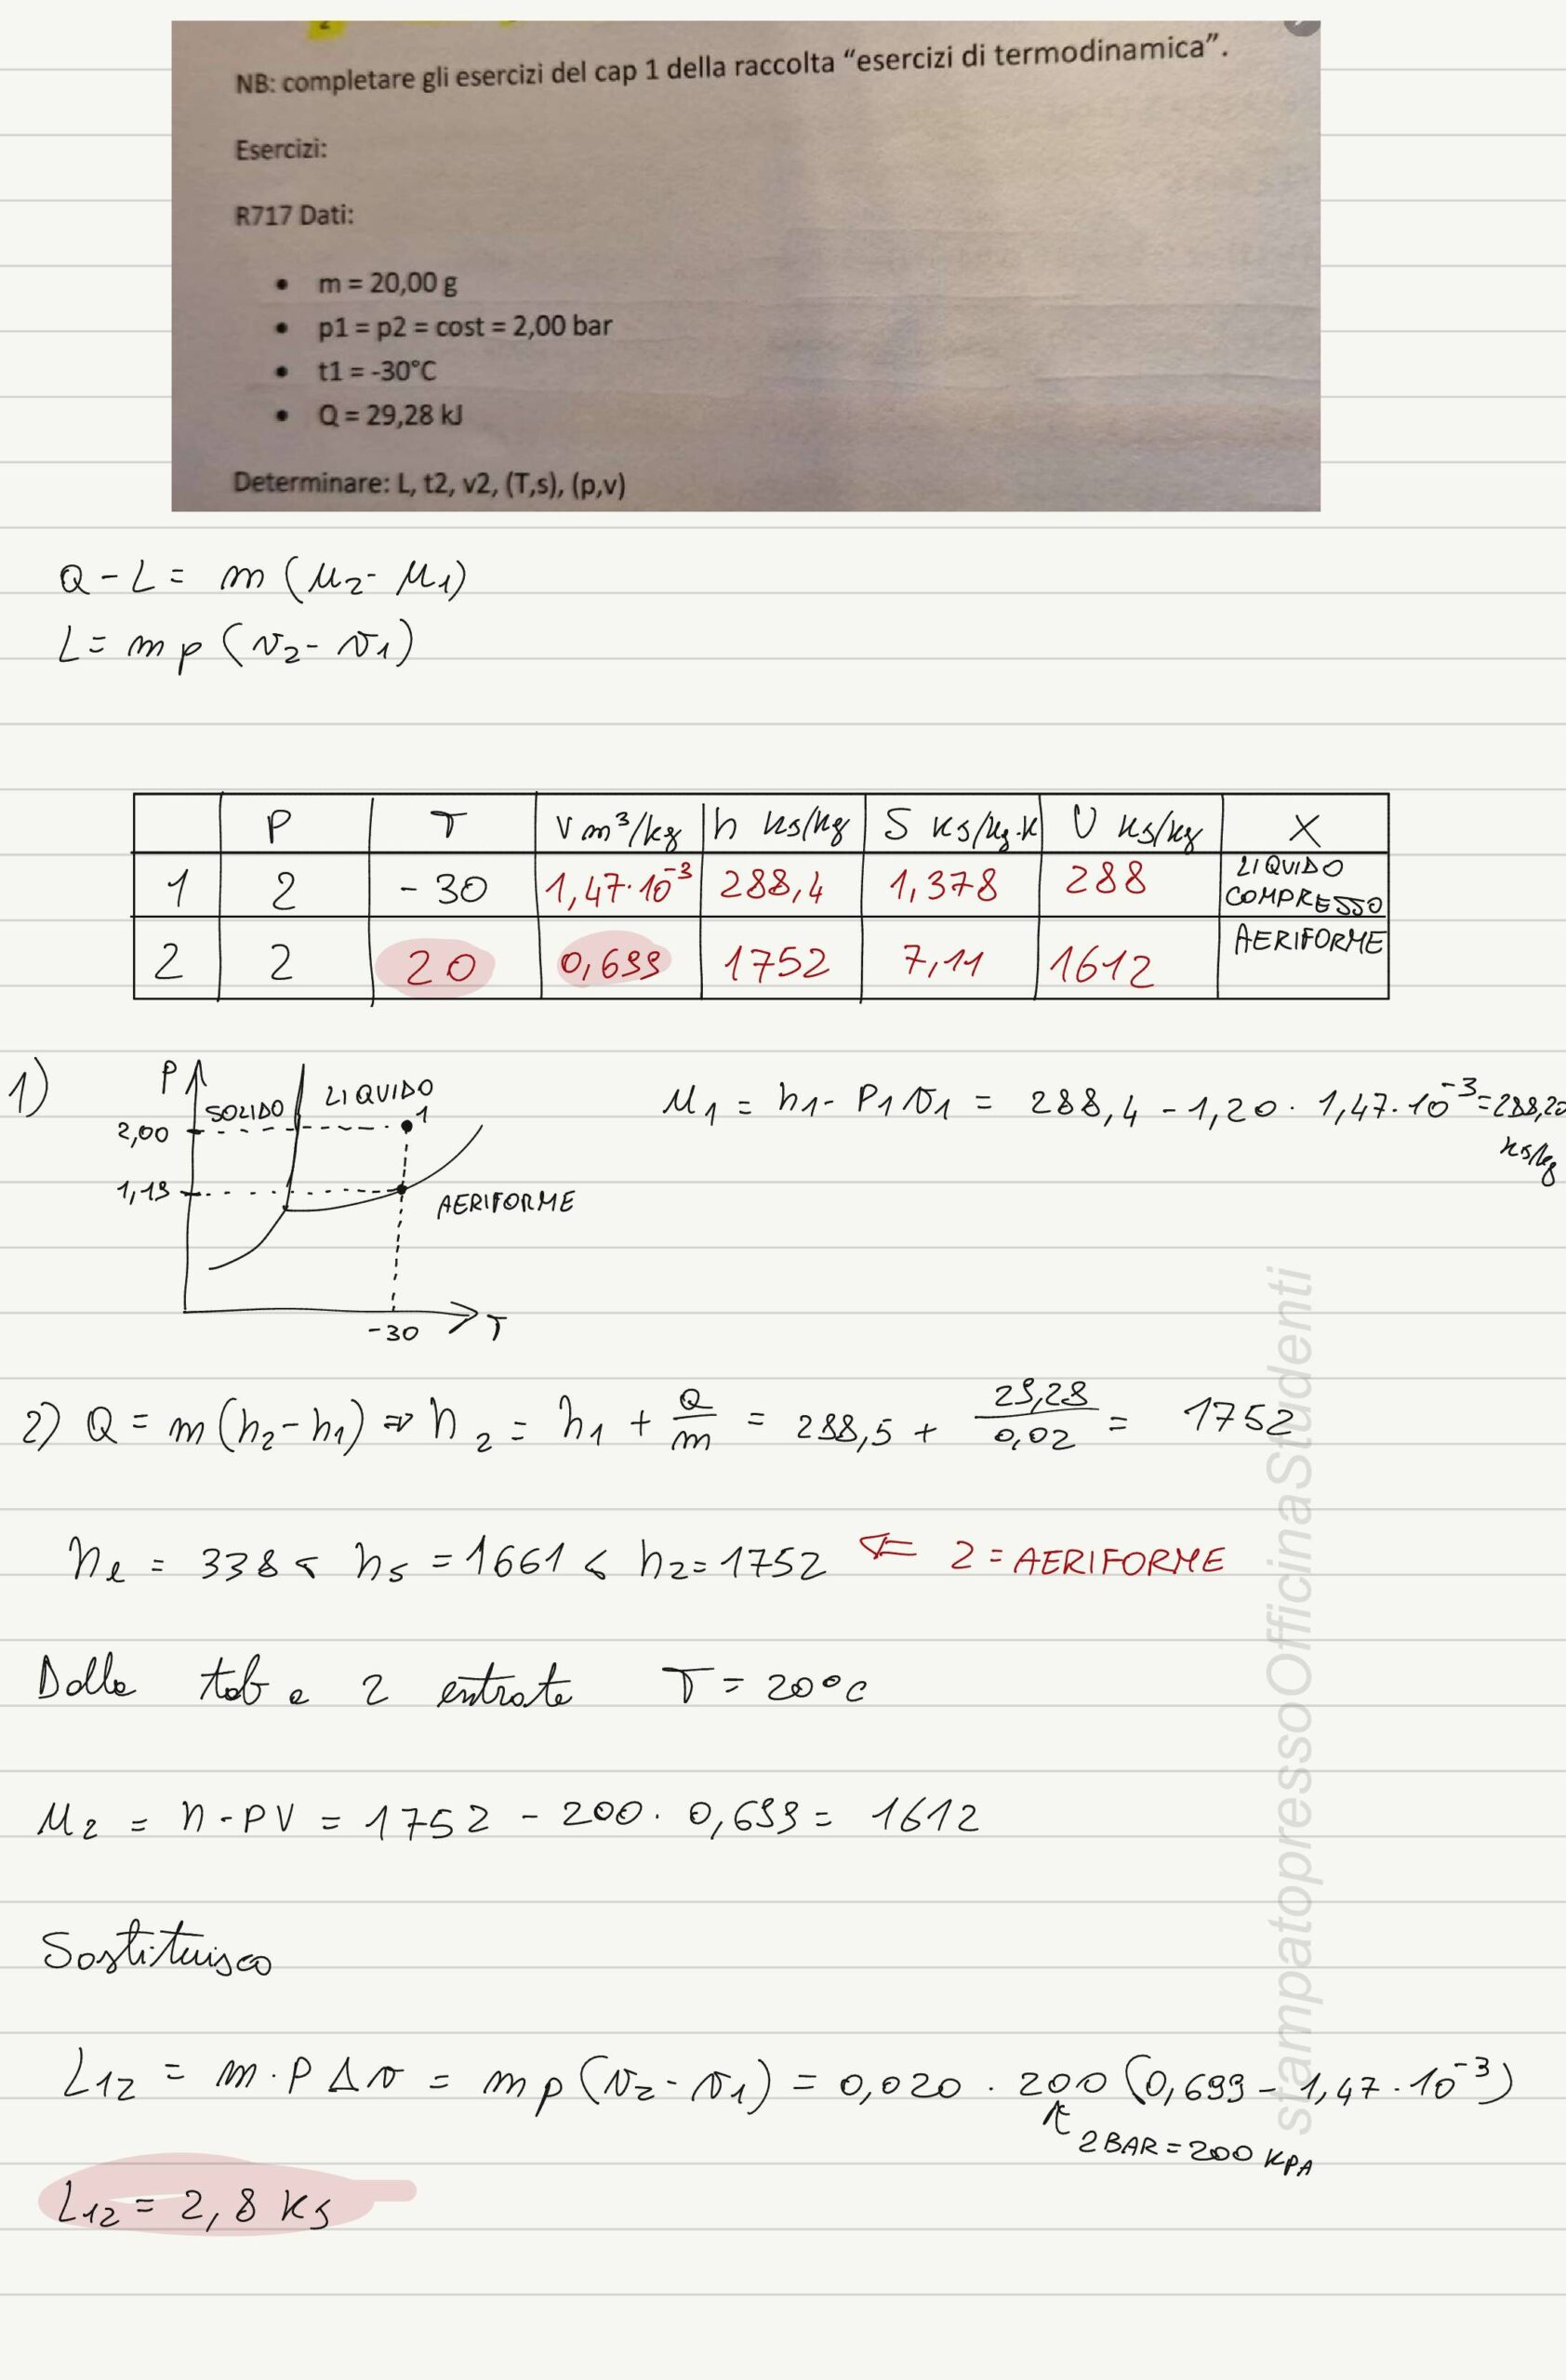 NB: completare gli esercizi del cap 1 della raccolta “esercizi di termodinamica”.
Esercizi:
R717 Dati:
• m = 20,00 g
• p1 = p2 = cost = 2,00 bar
• t1 = -30°C
• Q = 29,28 kJ
Determinare: L, t2, v2, (T,s), (p,v)
Q - L = m (u2 - u1)
L = m p (v2 - v1)
P T V m³/kg h kJ/kg S kJ/kg·K U kJ/kg X
1 2 -30 1,47·10⁻³ 288,4 1,378 288 LIQUIDO COMPRESSO
2 2 20 0,699 1752 7,11 1612 AERIFORME
1)
P SOLIDO LIQUIDO
2,00 1
1,19 AERIFORME
-30 T
u1 = h1 - P1 v1 = 288,4 - 1,20 · 1,47·10⁻³ = 288,20 kJ/kg
2) Q = m (h2 - h1) ⇒ h2 = h1 + Q/m = 288,5 + 29,28/0,02 = 1752
hl = 338 < hs = 1661 < h2 = 1752 ⇐ 2 = AERIFORME
Dalle tab a 2 entrate T = 20°C
u2 = h - PV = 1752 - 200 · 0,699 = 1612
Sostituisco
L12 = m · P Δv = mp (v2 - v1) = 0,020 · 200 (0,699 - 1,47·10⁻³)
2 BAR = 200 KPA
L12 = 2,8 kJ
stampatopressoOfficinaStudenti